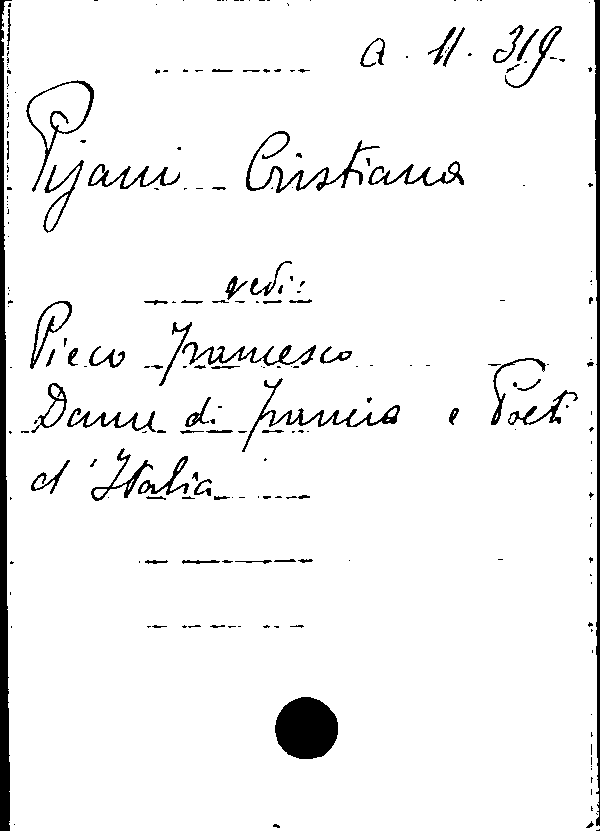 a. 11. 319
Pijani Cristiana
vedi:
Picco Francesco
Dame di Francia e Poeti
d'Italia